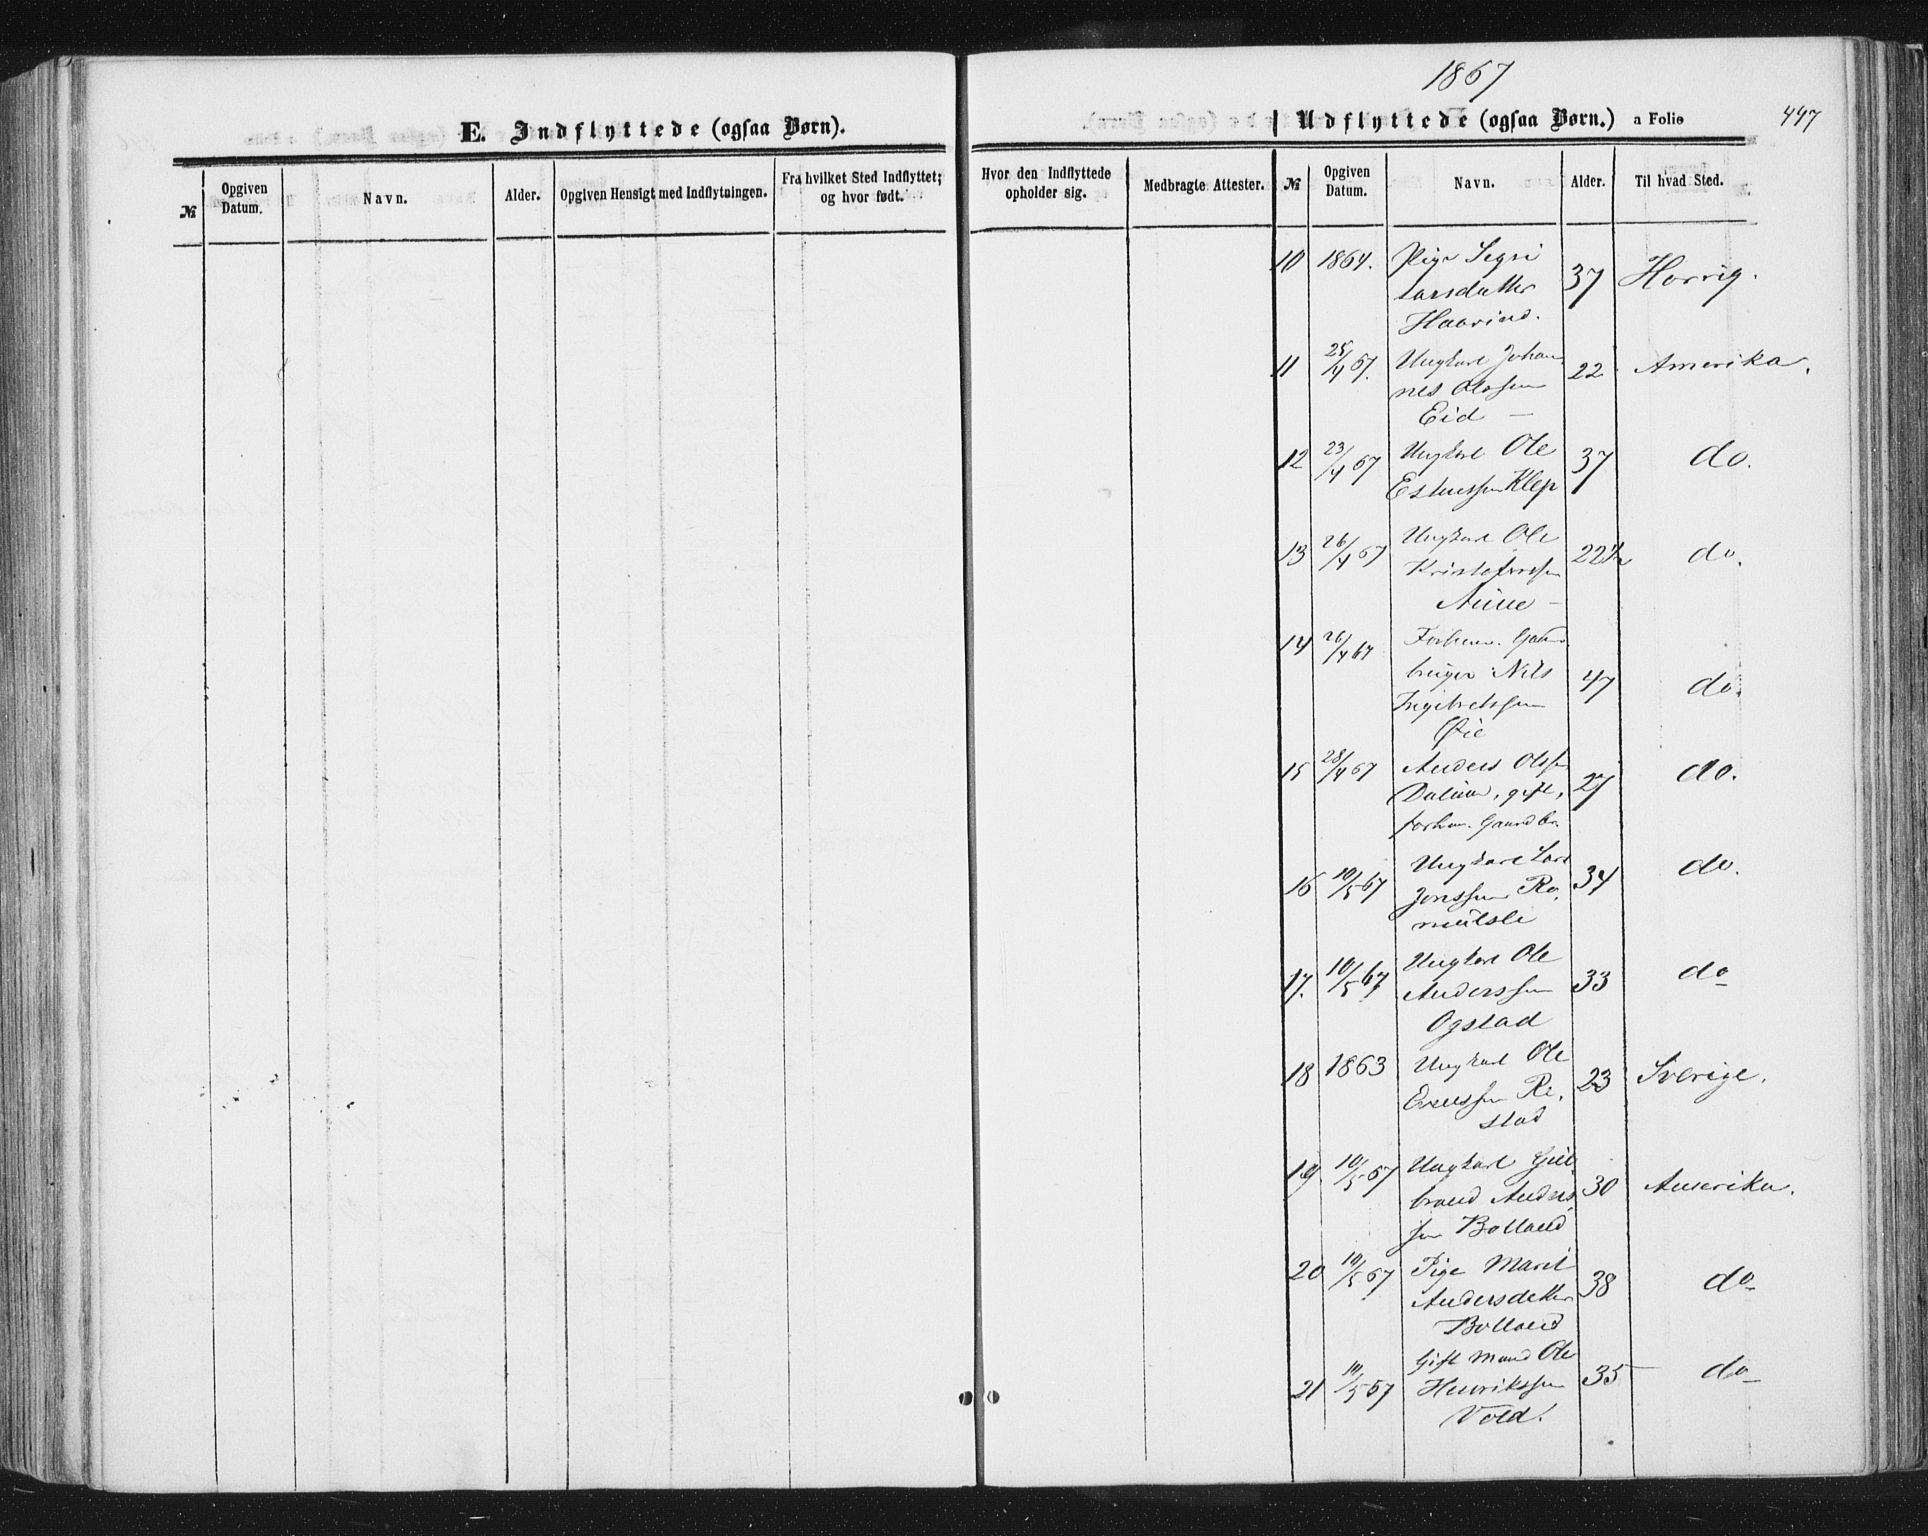 1867
447
E. Indflyttede (ogsaa Børn).
Udflyttede (ogsaa Børn.) a Folio
№
Opgiven Datum.
Navn.
Alder.
Opgiven Hensigt med Indflytningen.
Fra hvilket Sted Indflyttet; og hvor født.
Hvor den Indflyttede opholder sig.
Medbragte Attester.
№
Opgiven Datum.
Navn.
Alder.
Til hvad Sted.
10 1864. Pige Sigri 37 Horrig.
Larsdatter
11 25/4 67. Ungkarl Johan 22 Amerika.
nes Olsen
Eid —
12 23/4 67 Ungkarl Ole 37 do.
Estensen Klep
13 26/4 67 Ungkarl Ole 22 1/2 do.
Kristofersen
Aune —
14 26/4 67 Forhen. Gaard
bruger Nils 47 do.
Ingebretssen
Øie
15 28/4 67 Anders Olsen 27 do.
gift,
forhen. Gaardbr.
16 10/5 67 Ungkarl Lars 34 do.
Jonssen Ro
mulsli
17. 10/5 67 Ungkarl Ole 33 do
Anderssen
Ogstad
18 1863 Ungkarl Ole 23 Sverige.
Ericssen Re
stad
19. 10/5 67 Ungkarl Gul 30 Amerika.
brand Anders
sen Bolland
20 10/5 67 Pige Marit 38 do
Andersdatter
Bolland
21 10/5 67 Gift Mand Ole 35 do
Henrikssen
Vold.